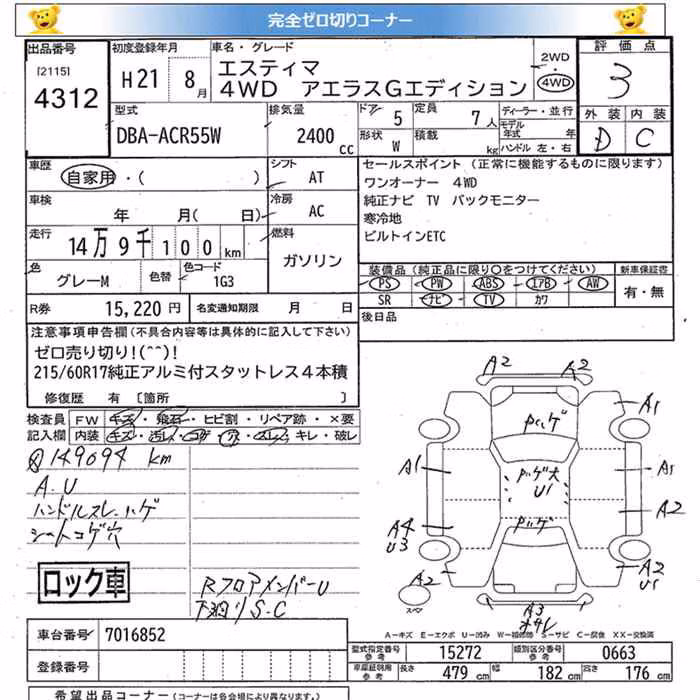 完全ゼロ切りコーナー
出品番号
[2115]
4312
初度登録年月
H21 8月
車名・グレード
エスティマ
4WD アエラスGエディション
2WD
・
4WD
評価点
3
外装 内装
D C
型式
DBA-ACR55W
排気量
2400 cc
ドア 5
形状 W
定員 7人
積載 kg
ディーラー・並行
モデル年式 年
ハンドル 左・右
車歴
自家用・( )
シフト
AT
車検
年 月( 日)
冷房
AC
走行
14万9千100km
燃料
ガソリン
色
グレーM
色替
色コード
1G3
R券 15,220円
名変通知期限 月 日
セールスポイント (正常に機能するものに限ります)
ワンオーナー 4WD
純正ナビ TV バックモニター
寒冷地
ビルトインETC
装備品(純正品に限り○をつけてください)
PS PW ABS エアB AW
SR ナビ TV カワ
新車保証書
有・無
後日品
注意事項申告欄(不具合内容等は具体的に記入して下さい)
ゼロ売り切り!(^^)!
215/60R17純正アルミ付スタットレス4本積
修復歴 有 [箇所 ]
検査員 FW キズ・飛石・ヒビ割・リペア跡・×要
記入欄 内装 キズ・汚レ・コゲ・穴・スレ・キレ・破レ
149094 km
A.U
ハンドルスレ・ハゲ
シートコゲ穴
ロック車
RフロアメンバーU
下廻りS.C
A2 A2
A1
Pハゲ
A1
Pハゲ大
U1
A2
Pハゲ
A4
U3
A2
A2
U1
スペア
A3
オサレ
A-キズ E-エクボ U-凹み W-補修跡 S-サビ C-腐食 XX-交換済
車台番号 7016852
登録番号
型式指定番号
参考
15272
類別区分番号
参考
0663
車庫証明用
参考
長さ 479 cm 幅 182 cm 高さ 176 cm
希望出品コーナー(各会場により異なります。)